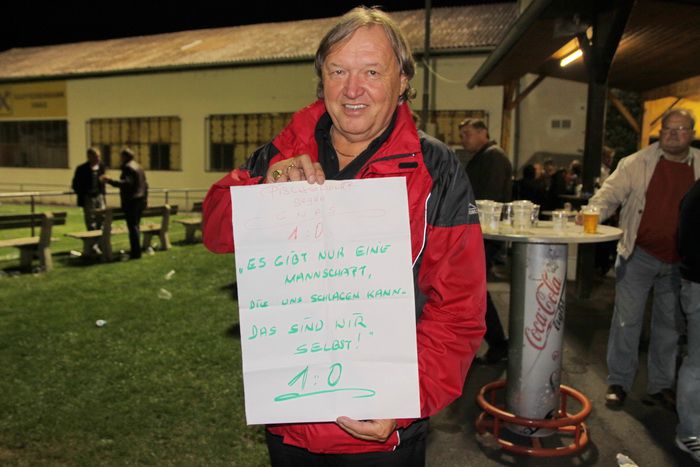 GEGEN
ENNS
1:0
„ES GIBT NUR EINE
MANNSCHAFT,
DIE UNS SCHLAGEN KANN-
DAS SIND WIR
SELBST!"
1:0
Coca-Cola